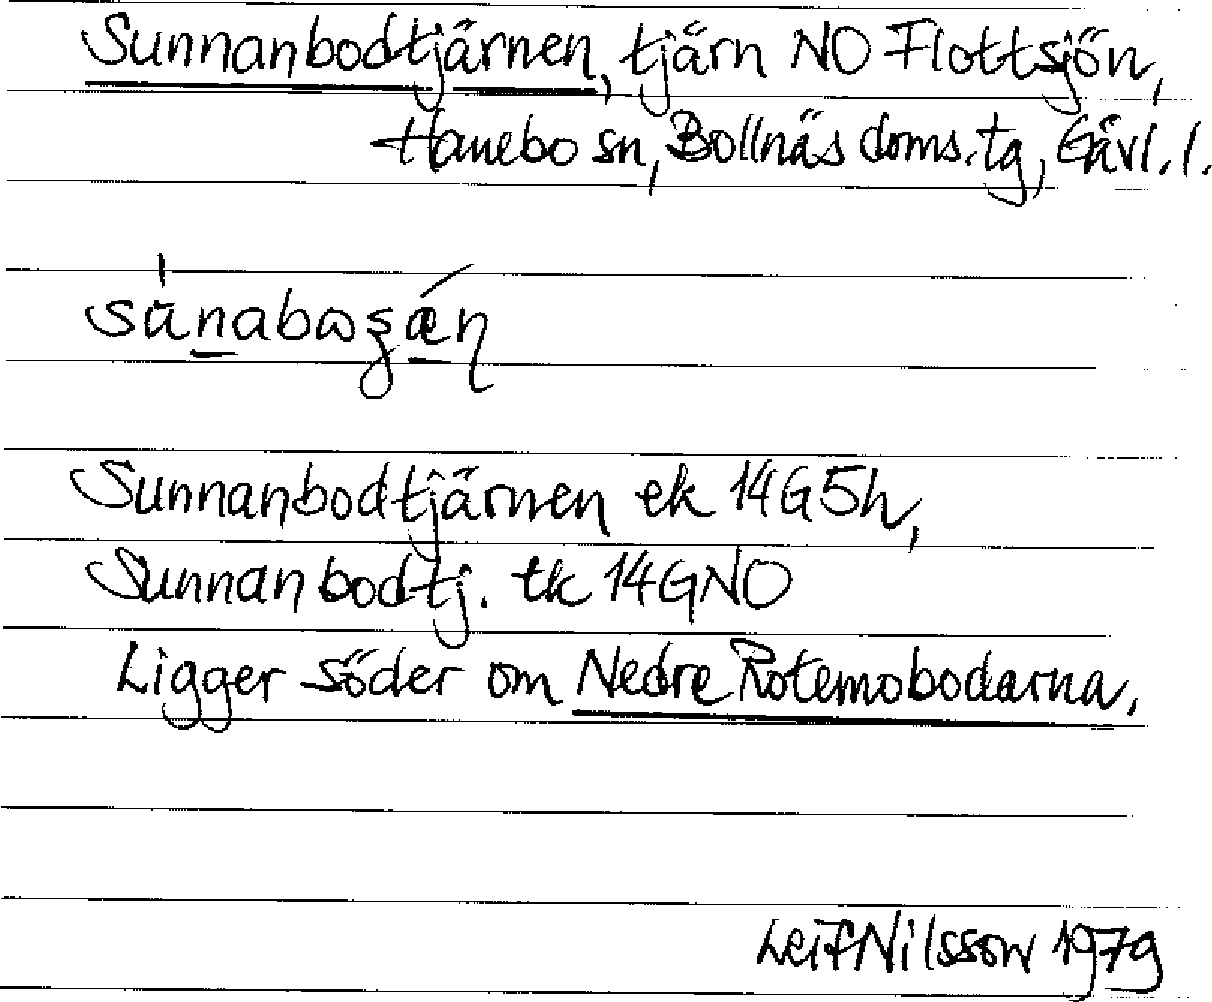 Sunnanbodtjärnen, tjärn NO Flottsjön,
Hanebo sn, Bollnäs doms.tg, Gävl.l.
Sunnanbodtjärnen ek 14G5h,
Sunnanbodtj. tk 14GNO
Ligger söder om Nedre Rotemobodarna.
Leif Nilsson 1979